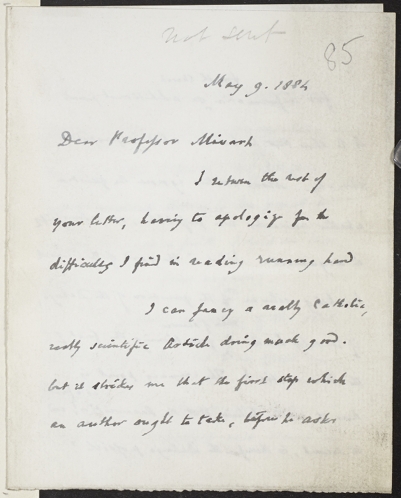 not sent
85
May 9. 1884
Dear Professor Mivart
I return the rest of
your letter, having to apologize for the
difficulty I find in reading running hand
I can fancy a really Catholic,
really scientific Article doing much good.
but it strikes me that the first step which
an author ought to take, before he asks